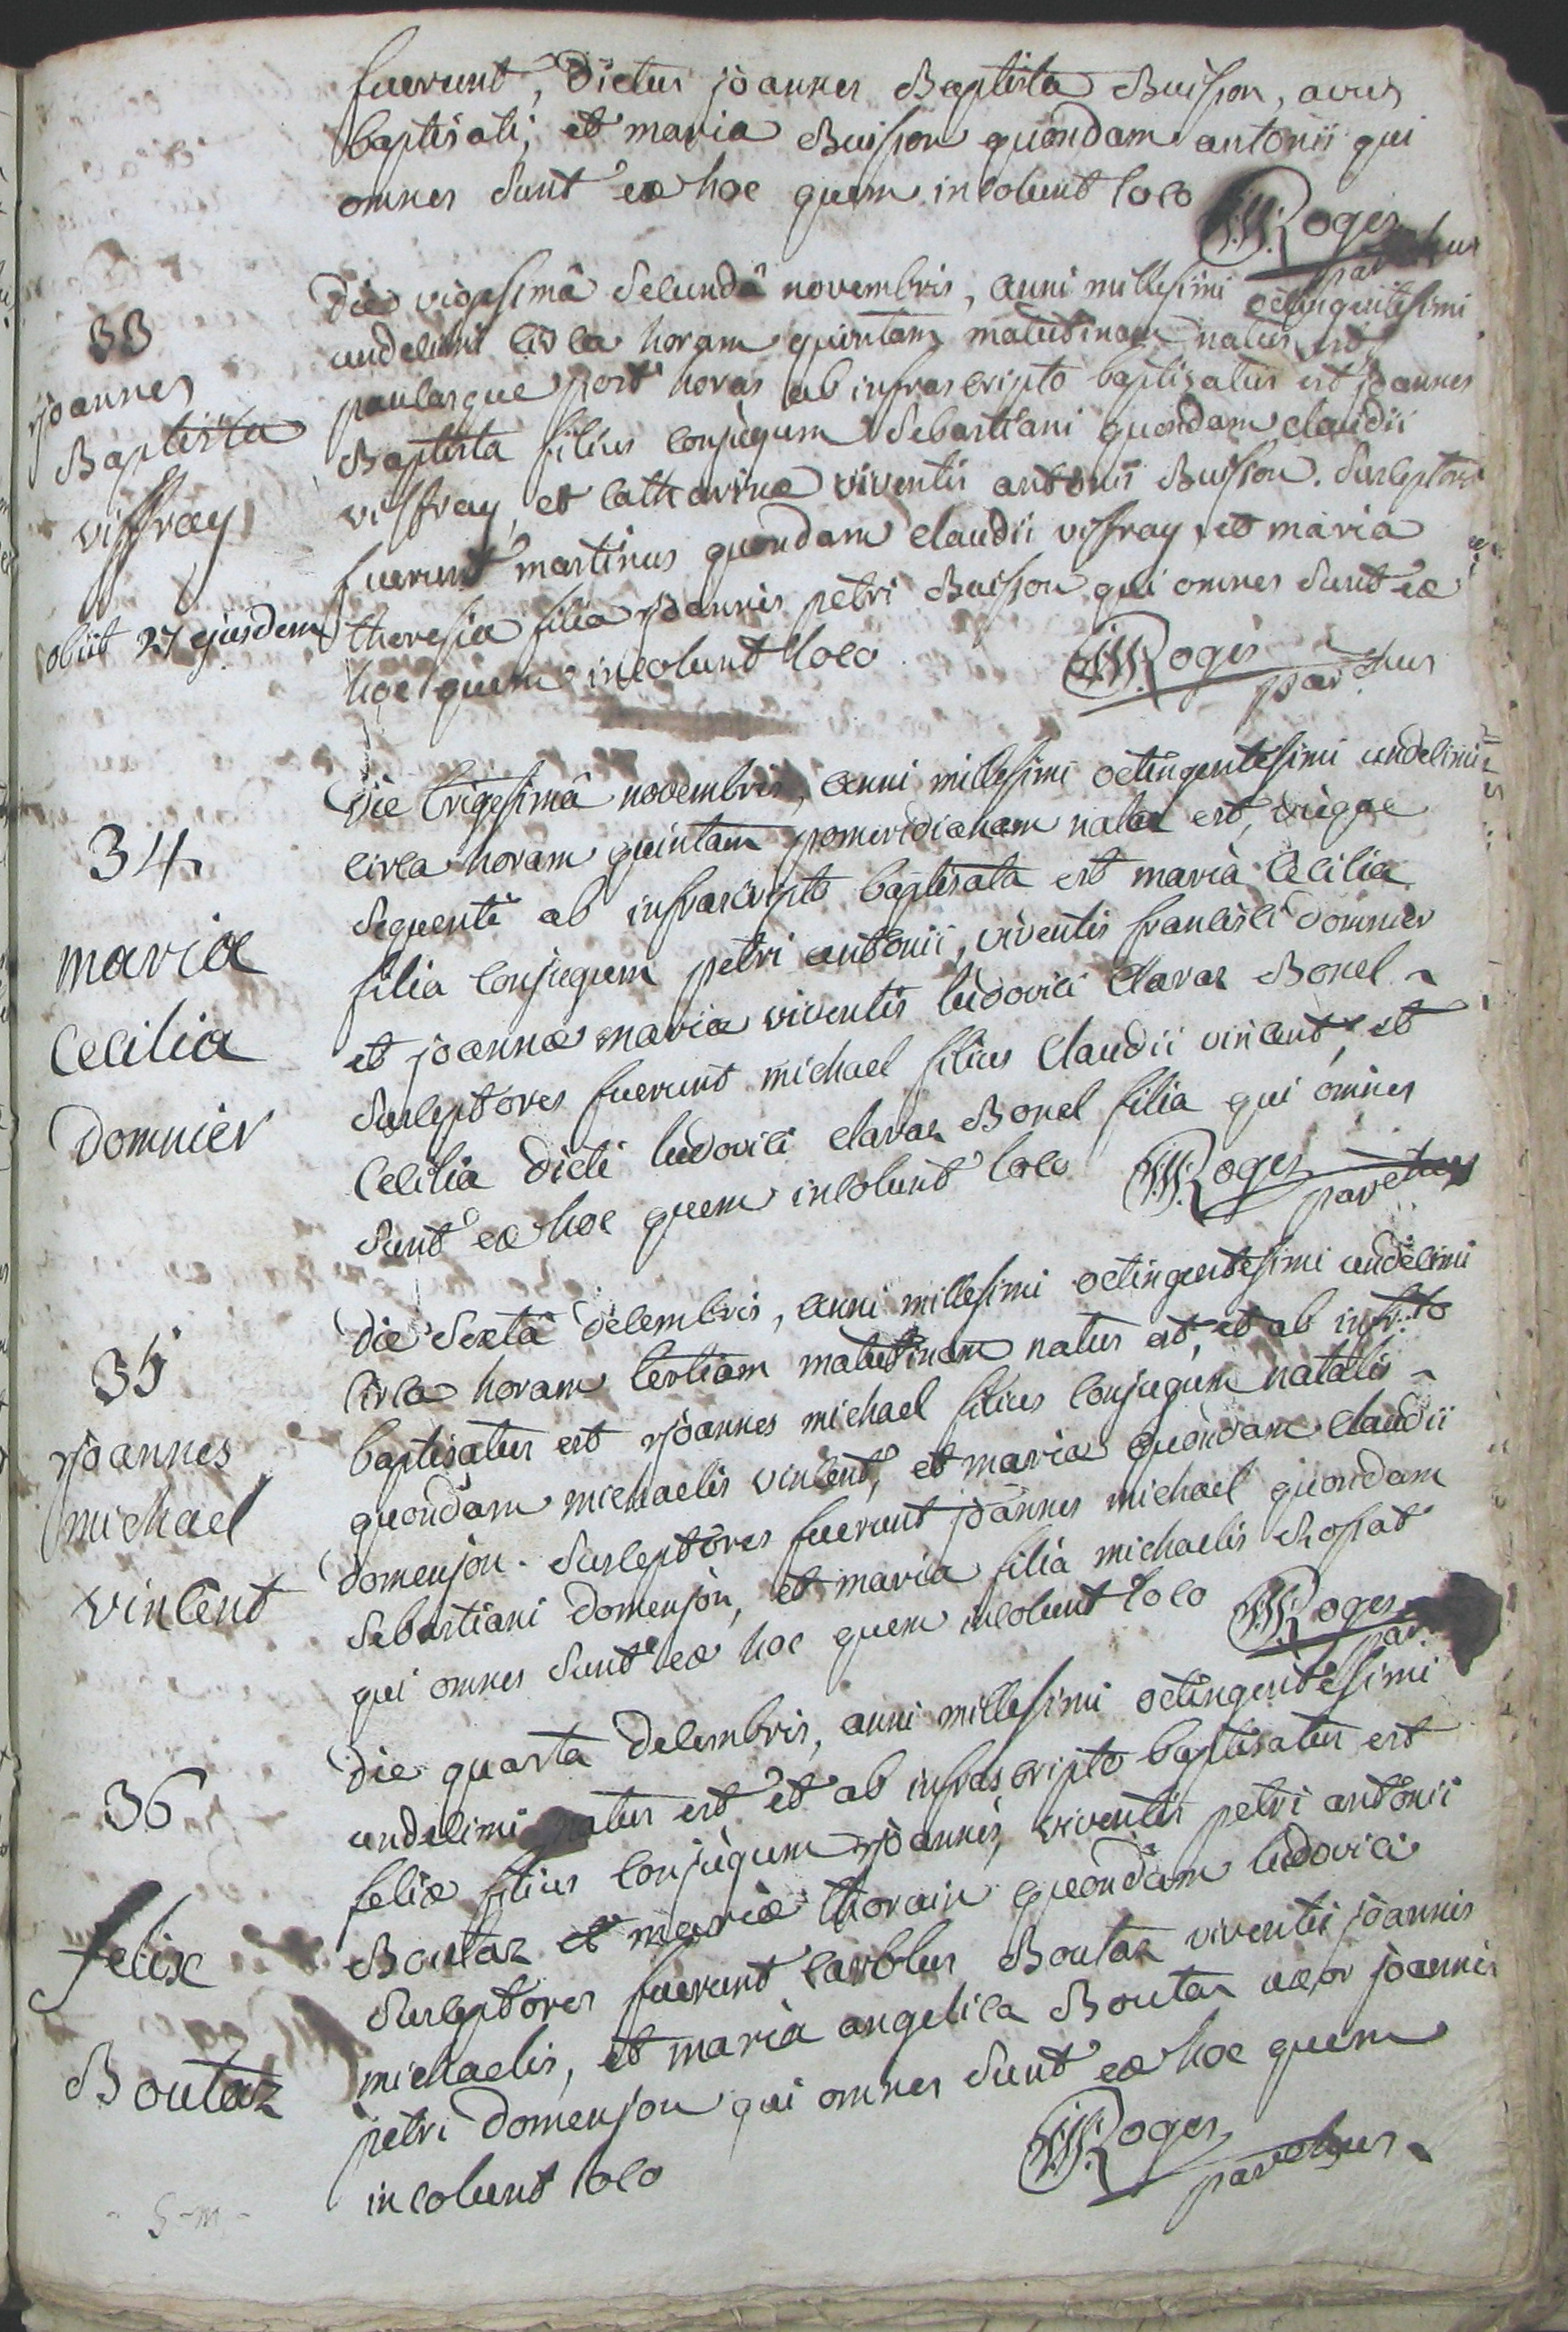 fuerunt, dictus joannes Baptista Buisson, avus
baptisati, et maria Buisson quondam antonii qui
omnes sunt ex hoc quem incolunt loco
Roges
parochus
33
joannes
Baptista
viffray
obiit 27 ejusdem
Die vigesimâ secundâ novembris, anni millesimi octingentesimi
undecimi circa horam quintam matutinam natus est,
paulasque post horas ab infrascripto baptisatus est joannes
Baptista filius conjugum Sebastiani quondam claudii
viffray, et catharinæ viventis antonii Buisson. Susceptores
fuerunt martinus quondam claudii viffray, et maria
theresia filia joannis petri Buisson qui omnes sunt ex
hoc quem incolunt loco
Roges
parochus
34
maria
Cecilia
Domnier
Die trigesimâ novembris, anni millesimi octingentesimi undecimi
circa horam quintam pomeridianam nata est, dieque
sequenti ab infrascripto baptisata est maria Cecilia
filia conjugum petri antonii, viventis francisci domnier
et joannæ mariæ viventis ludovici Claraz Bonel
susceptores fuerunt michael filius Claudii vincent, et
Cecilia dicti ludovici claraz Bonel filia qui omnes
sunt ex hoc quem incolunt loco
Roges
parochus
35
joannes
michael
vincent
Die sextâ decembris, anni millesimi octingentesimi undecimi
circa horam tertiam matutinam natus est, et ab infr..to
baptisatus est joannes michael filius conjugum natalis
quondam michaelis vincent, et mariæ quondam claudii
domenjon. Susceptores fuerunt joannes michael quondam
Sebastiani domenjon, et maria filia michaelis Rossat
qui omnes sunt ex hoc quem incolunt loco
Roges
par
36
felix
Boutaz
Die quarta decembris, anni millesimi octingentesimi
undecimi natus est et ab infrascripto baptisatus est
felix filius conjugum joannis, viventis petri antonii
Boutaz et mariæ thorain quondam ludovici
Susceptores fuerunt carolus Boutaz viventis joannis
michaelis, et maria angelica Boutaz uxor joannis
petri domenjon qui omnes sunt ex hoc quem
incolunt loco
Roges
parochus